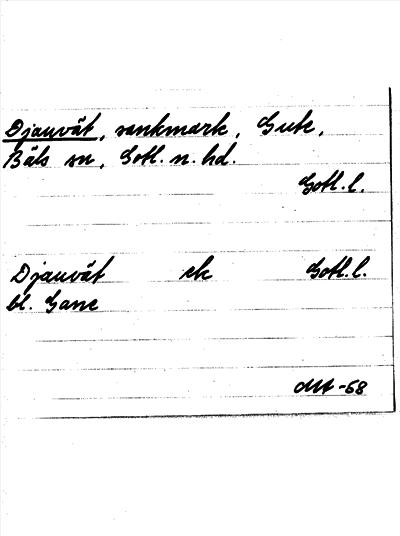 Djauvät, sankmark, Gute,
Bäls sn, Gotl. n. hd.
Gotl. l.
Djauvät ek Gotl. l.
bl. Gane
-68